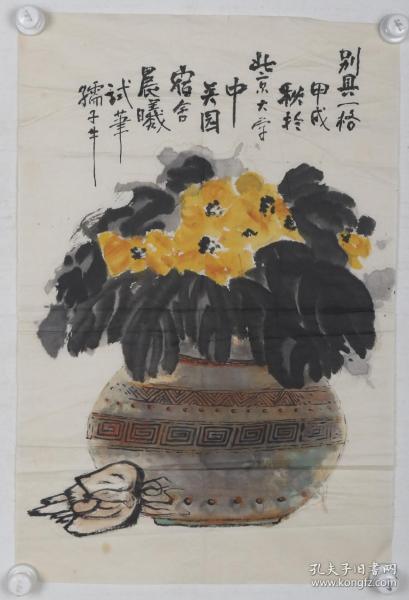 别具一格
甲戌
秋於
北京大学
中
关园
宿舍
晨曦
试笔
孺子牛
孔夫子旧书网
www.kongfz.com